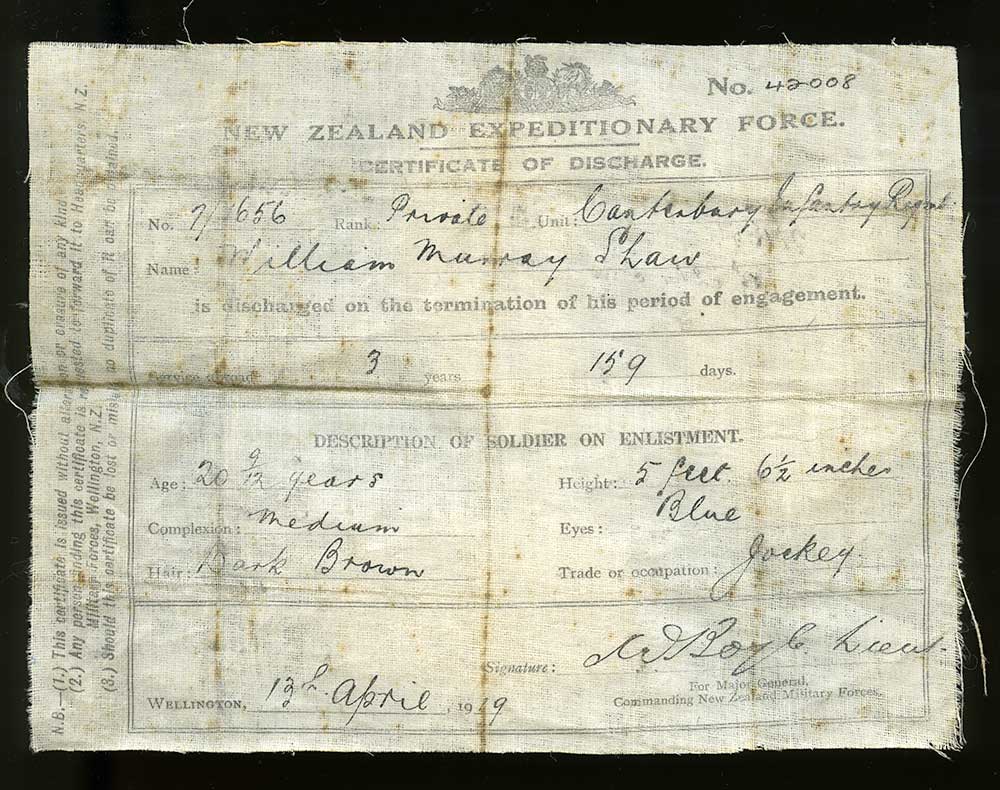 No. 42008
NEW ZEALAND EXPEDITIONARY FORCE.
CERTIFICATE OF DISCHARGE.
No. 7/656 Rank: Private Unit: Canterbury Infantry Regmt
Name: William Murray Shaw
is discharged on the termination of his period of engagement.
Service abroad 3 years 159 days.
DESCRIPTION OF SOLDIER ON ENLISTMENT.
Age: 20 9/12 years Height: 5 feet 6½ inches
Complexion: Medium Eyes: Blue
Hair: Dark Brown Trade or occupation: Jockey.
Signature: Boyle Lieut.
For Major-General,
Commanding New Zealand Military Forces.
WELLINGTON, 13th April, 1919
N.B.—(1.) This certificate is issued without alteration or erasure of any kind
(2.) Any person finding this certificate is requested to forward it to Headquarters N.Z.
Military Forces, Wellington, N.Z.
(3.) Should this certificate be lost or mislaid no duplicate of it can be obtained.